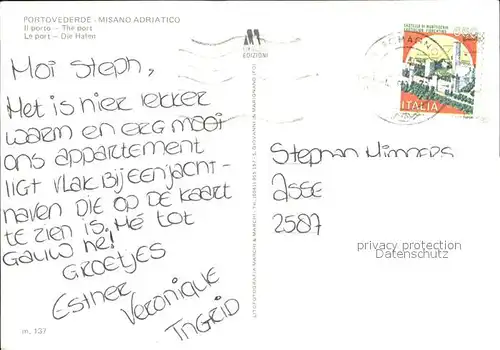 PORTOVEDERDE - MISANO ADRIATICO
Il porto - The port
Le port - Die Hafen
Moi Steph,
Het is hier lekker
warm en erg mooi
ons appartement
ligt vlak bij een jacht-
haven die op de kaart
te zien is. Hé tot
gauw hè!
Groetjes
Esther
Veronique
Ingrid
m. 137
EDIZIONI
ITALIA
Stephan
Asse
2587
privacy protection
Datenschutz